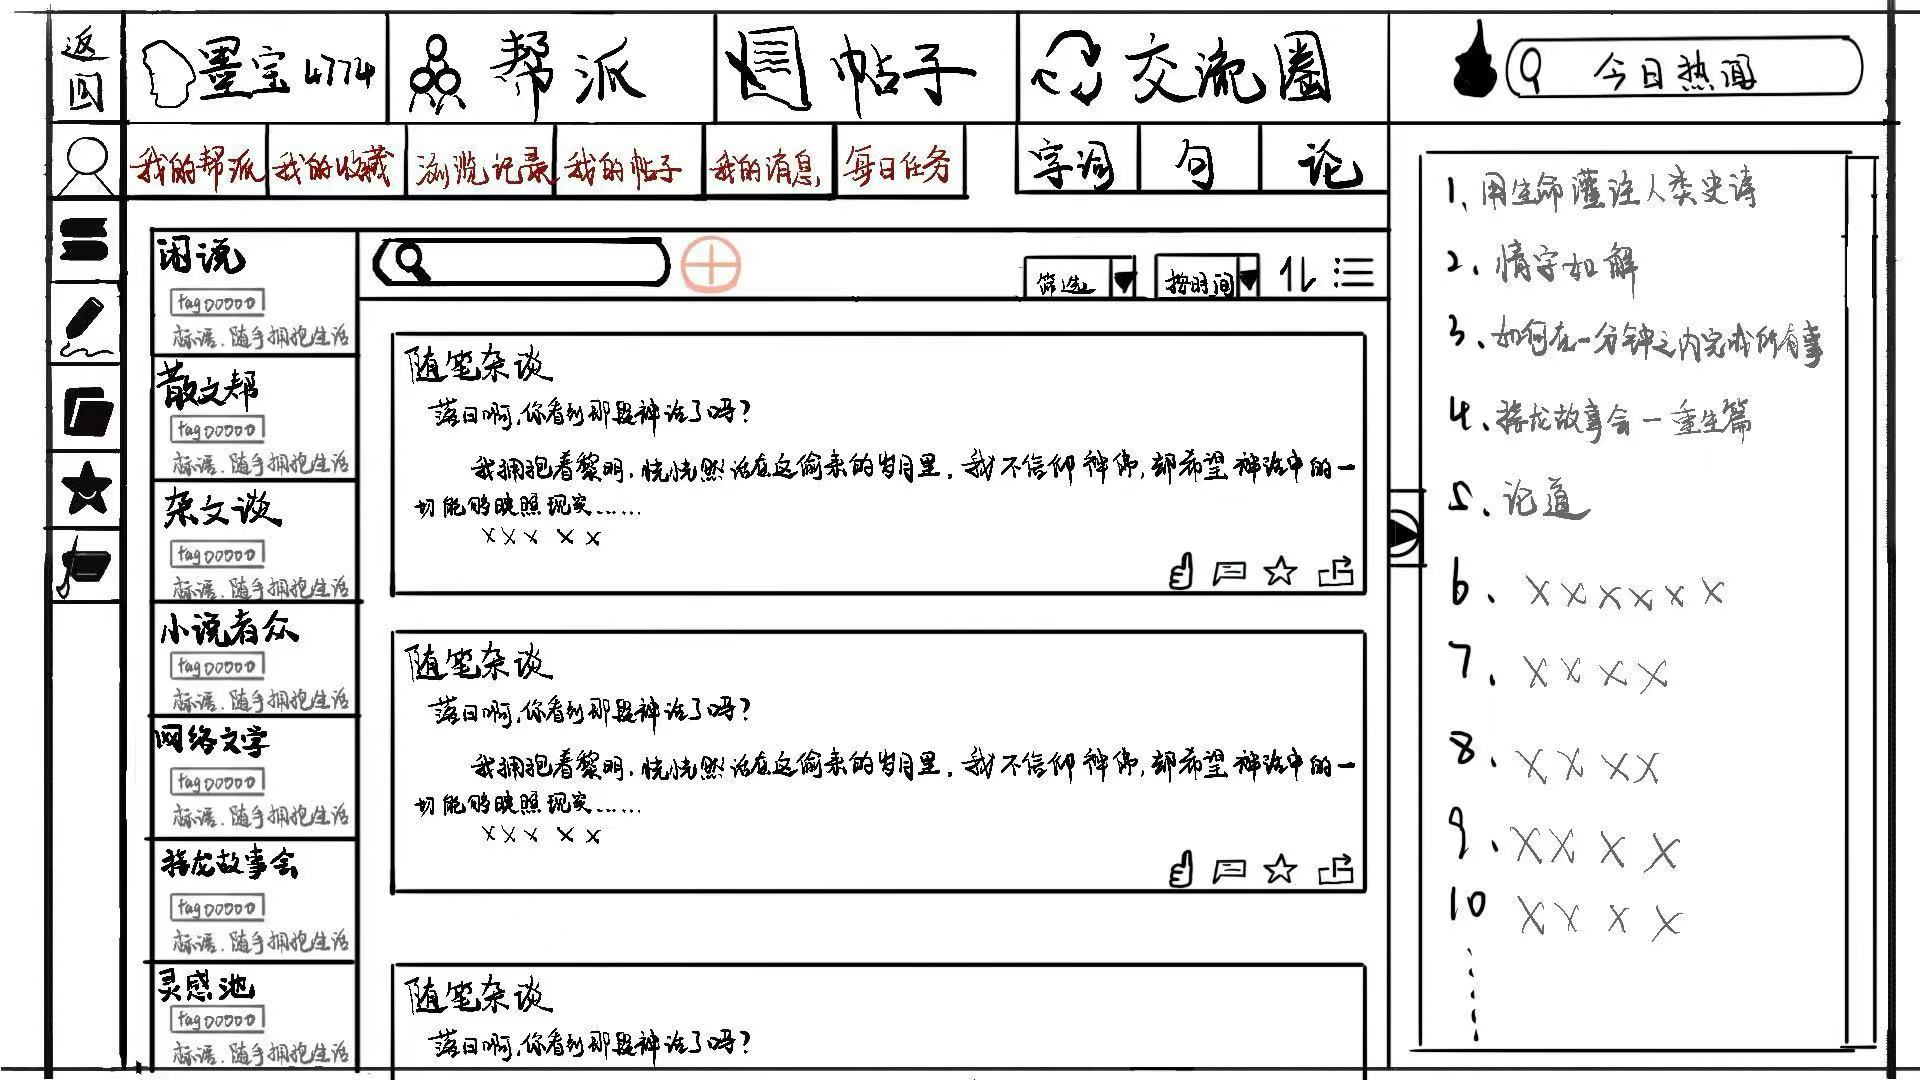 返回
墨宝4774
帮派
帖子
交流圈
今日热闻
我的帮派
我的收藏
浏览记录
我的帖子
我的消息
每日任务
字词
句
论
筛选
按时间
闲说
tag00000
标语:随手拥抱生活
散文帮
tag00000
标语:随手拥抱生活
杂文谈
tag00000
标语:随手拥抱生活
小说看众
tag00000
标语:随手拥抱生活
网络文学
tag00000
标语:随手拥抱生活
接龙故事会
tag00000
标语:随手拥抱生活
灵感池
tag00000
标语:随手拥抱生活
随笔杂谈
落日啊,你看到那段神话了吗?
我拥抱着黎明,恍恍然活在这偷来的岁月里。我不信仰神佛,却希望神话中的一
切能够映照现实......
×××××
随笔杂谈
落日啊,你看到那段神话了吗?
我拥抱着黎明,恍恍然活在这偷来的岁月里。我不信仰神佛,却希望神话中的一
切能够映照现实......
×××××
随笔杂谈
落日啊,你看到那段神话了吗?
1、用生命灌注人类史诗
2、情字如解
3、如何在一分钟之内完成所有事
4、接龙故事会一重生篇
5、论道
6、××××××
7、××××
8、××××
9、××××
10 ××××